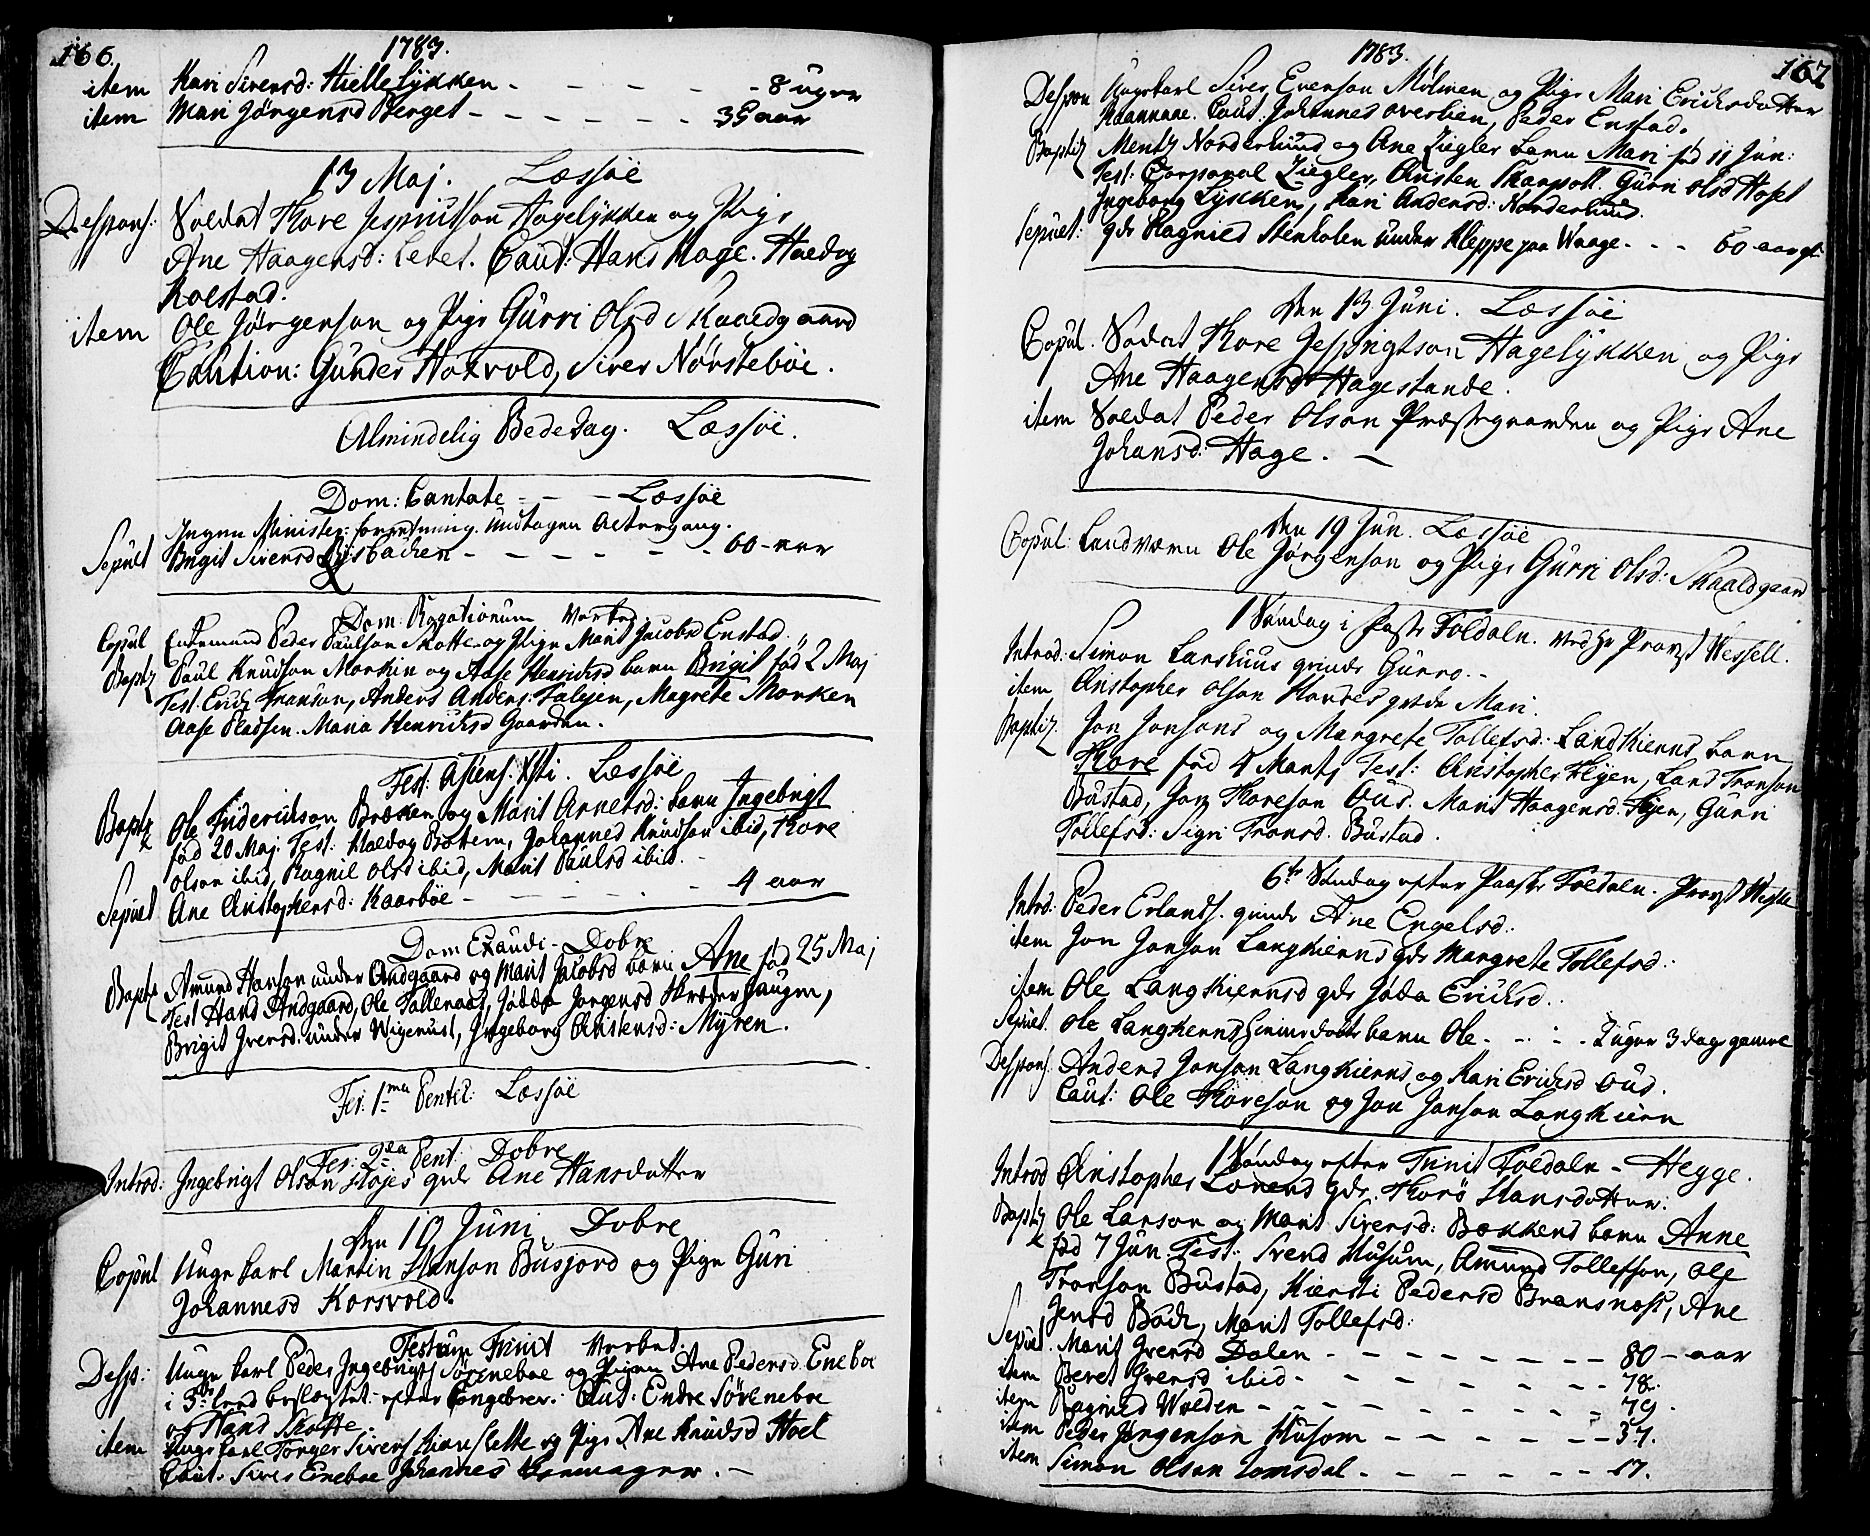 166.
1783.
item Kari Siversd: Hiellelykken - - - - - 8 uger
item Mari Jørgensd Berget - - - - - - 35 aar
13 Maj. Læssøe
Despons: Soldat Thore Jespnutson Hagelykken og Pige
Ane Haagensd: Levet. Caut: Hans Hage. Haedog
Kolstad.
item Ole Jørgenson og Pige Gurri Olsd Skaaedgaard
Caution: Gunder Holvold, Siver Nørstebøe.
Almindelig Bededag. Læssøe.
Dom: Cantate - - - Læssøe
Ingen Minister: forretning. Undtagen Altergang.
Sepult Brigit Sivensd Lysbacken - - - - - - - 60 - aar
Dom: Rogationum
Copul Enkemand Peder Paulson Skotte og Pige Marit Jacobsd Enstad.
Baptz Paul Knudson Morken og Aase Henriksd barn Brigit fød 2 Maj
Test. Erich Transon, Anders Anders: Falgen, Magrete Morken
Aase Pladsen. Maria Henricksd Gaarden.
Fest: Asiens: Xsti. Læssøe
Baptz Ole Friderikson Bræken og Marit Arnetsd: barn Ingebrigt
fød 20 Maj. Test: Haldog Bottem, Johannes Knudson ibid, Thore
Olson ibid, Ragnil Olsd ibid, Marit Paulsd ibid.
Sepult Ane Christophersd: Kaarbøe - - - - - - 4 aar
Dom Exaudi - Dobre
Baptz Amund Hanson under Andgaard og Marit Jacobsd barn Ane fød 25 Maj
Test Hans Andgaard, Ole Talleraas, Jødde Jørgensd Skreder Haugen,
Brigit Iversd: under Wigerust, Ingeborg Christensd: Myren.
Fer: 1ma Pentec: Læssøe
Fer: 2da Pent: Dobre
Introd: Ingebrigt Olson Høyes qvde Ane Hansdatter
Den 10 Juni Dobre
Copul Unge karl Martin Hanson Busjord og Pige Guri
Johannesd Korsvold.
Festum Trinit
Desp: Unge karl Peder Ingebrigts Sørenebøe og Pigen Ane Pedersd. Enebøe
i 3de leed beslægtet efter Caut: Endre Sørenebøe
og Hans Skotte
item Unge karl Torger Sivers Kianslette og Pige Ane Knudsd Hoel
Caut: Siver Enebøe Johannes
1783.
167
Despon Ungekarl Siver Evenson Mølmen og Pige Mari Ericksdatter
Caut: Johannes Overlien, Peder Enstad.
Baptiz Mentz Norderhuus og Ane Ziegler barn Mari fød 11 Jun:
Test: Corporal Ziegler, Christen Skarpott. Gurri Olsd Hoset
Ingeborg Lykken, Kari Andersd: Norderhuus.
Sepult: qde Ragnild Stenholen under Kleppe paa Waage - - - 60 aar gl
Den 13 Juni. Læssøe
Copul. Sodat Thore Jespnigtson Hagelykken og Pige
Ane Haagensd Hagestande.
item Soldat Peder Olson Præstegaarden og Pige Ane
Johansd: Hage. -
Den 19 Jun. Læssøe
Copul: Landværn Ole Jørgenson og Pige Gurri Olsd: Skaaldgaard
1 Søndag i Paaste Foldaln. Ved Hr Provst Wessell.
Introd: Simon Lanshuus qvinde Gunro. -
item Christopher Olson Haudes qvde Mari.
Baptiz. Jon Jonsons og Margrete Tollefsd: Landkienns barn
Thore fød 4 Marti Test: Christopher Flyen, Land Tronson
Bustad, Jon Thoreson Oüs. Marit Haagensd. Flyen, Guni
Tollefsd: Signi Tronsd. Bustad.
6te Søndag efter Paaste Foldaln. Provst Weszle
Introd: Peder Erlands. qvinde Ane Engelsd.
item Jon Jonson Langkienns qde Margrete Tollefsd:
item Ole Langkiennsd qde Jøda Ericksd.
Sepult. Ole Langkenns barn Ole - - - - 2 uger 3 dage gamle
Despons. Anders Jonson Langkienns og Kari Ericksd Oüs.
Caut: Ole Thoreson og Jon Jonson Langkienn
1 Søndag efter Trinit Foldaln - Hegge.
Introd Christopher Lorends qde. Thorø Hansdatter:
Baptz Ole Larson og Marit Sivensd: Bækkens barn Anne
fød 7 Jun: Test: Svend Husum, Amund Tollefson, Ole
Tronson Bustad, Kiersti Pedersd Brænsnose, Ane
Jensd Boch, Marit Tollefsd:
Sepult. Marit Iversd Dalen - - - - - - - 80 - aar
item Beret Iversd ibid - - - - - - - 78.
item Ragnild Wolden - - - - - - - 79.
item Peder Jørgenson Husom - - - - - - - 37.
item Simon Olson Lomsdal - - - - - - - 17.